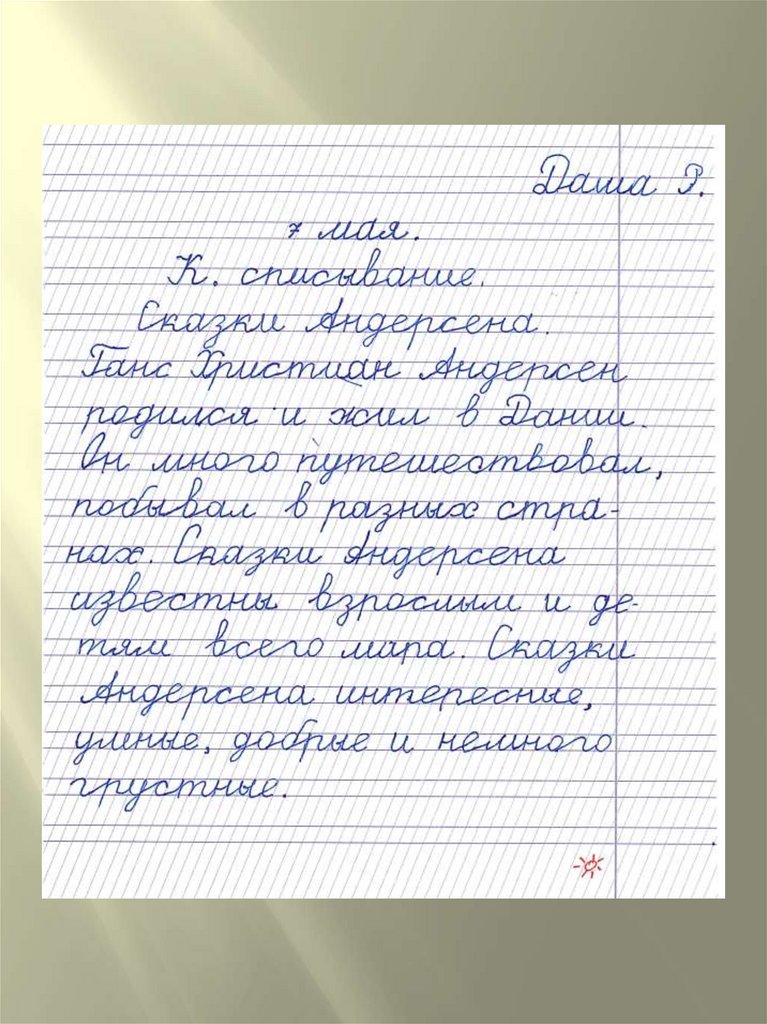 Даша Р.
7 мая.
К. списывание.
Сказки Андерсена.
Ганс Христиан Андерсен
родился и жил в Дании.
Он много путешествовал,
побывал в разных стра-
нах. Сказки Андерсена
известны взрослым и де-
тям всего мара. Сказки
Андерсена интересные,
умные, добрые и немного
грустные.